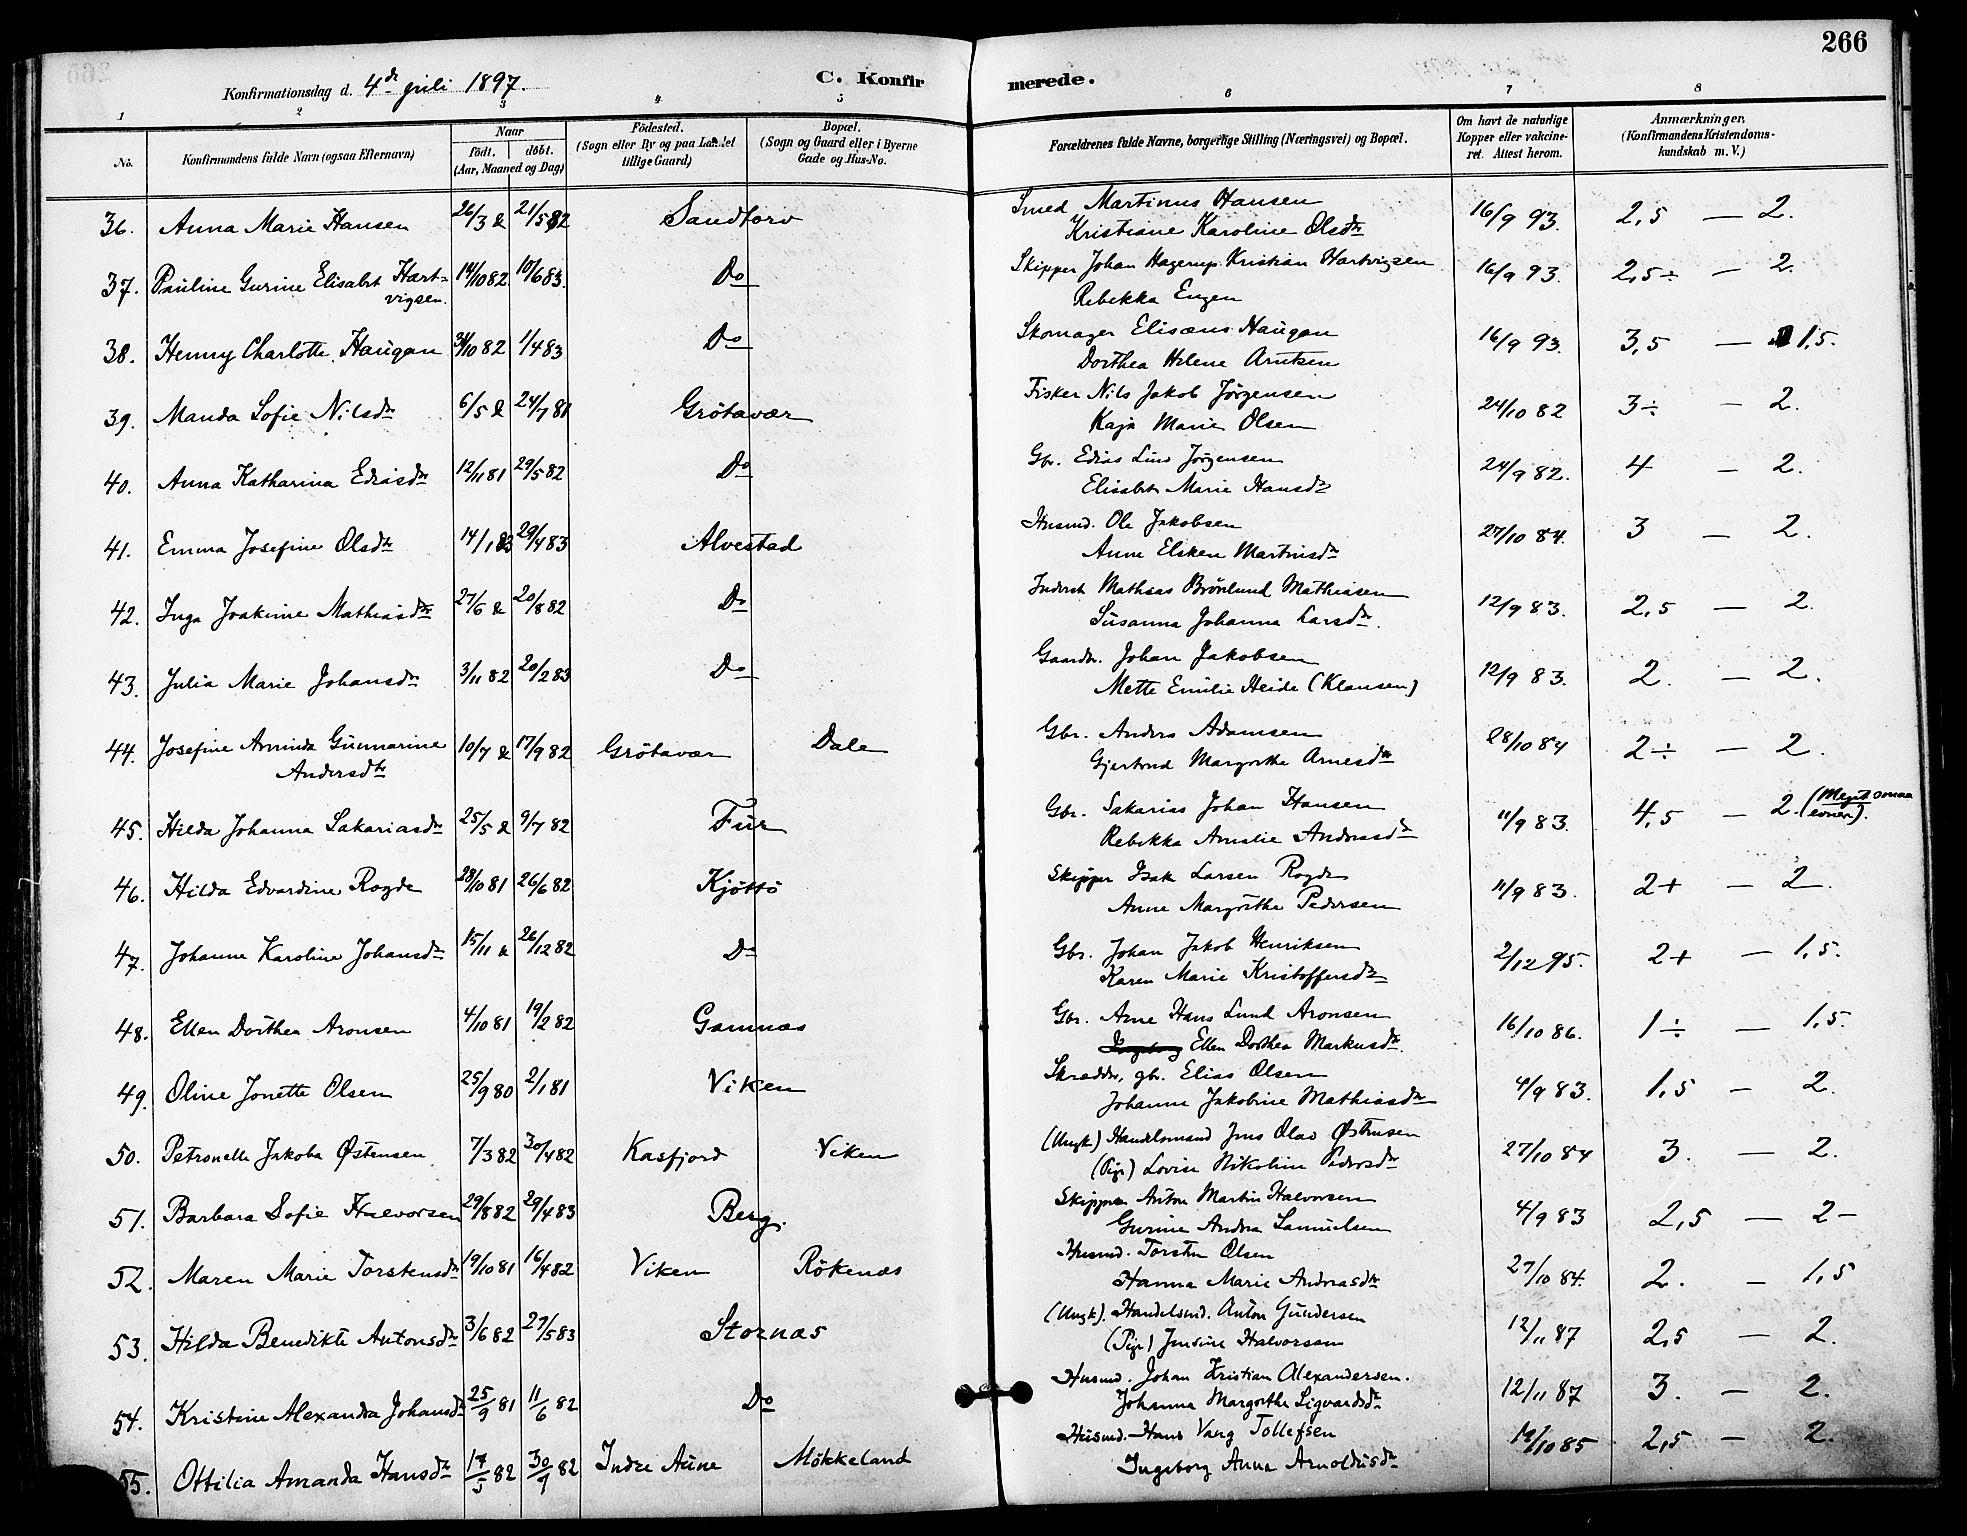 266
Konfirmationsdag d. 4de juli 1897.
C. Konfirmerede.
1 2 3 4 5 6 7 8
No. Konfirmandens fulde Navn (ogsaa Efternavn) Naar født. døbt. (Aar, Maaned og Dag) Fødested. (Sogn eller By og paa Landet tillige Gaard) Bopæl. (Sogn og Gaard eller i Byerne Gade og Hus-No. Forældrenes fulde Navne, borgerlige Stilling (Næringsvei) og Bopæl. Om havt de naturlige Kopper eller vakcineret. Attest herom. Anmærkninger. (Konfirmandens Kristendomskundskab m. V.)
36. Anna Marie Hansen 26/3 82 21/5 82 Sandtorv Smed Martinus Hansen 16/9 93. 2,5 — 2.
Kristiane Karoline Olsdtr
37. Pauline Gurine Elisabet Hartvigsen. 14/10 82 10/6 83. Do Skipper Johan Hagerup Kristian Hartvigsen 16/9 93. 2,5÷ — 2.
Rebekka Engen
38. Henny Charlotte Haugan 31/10 82 1/4 83 Do Skomager Elisæus Haugan 16/9 93. 3,5 — 1,5.
Dorthea Helene Arntsen
39. Manda Sofie Nilsdtr 6/5 24/7 81 Grötavær Fisker Nils Jakob Jörgensen 24/10 82 3÷ — 2.
Kaja Marie Olsen
40. Anna Katharina Ediasdtr 12/11 81 29/5 82 Do Gbr. Edias Linő Jörgensen 24/9 82. 4 — 2.
Elisabet Marie Hansdtr
41. Emma Josefine Olsdtr 14/1 83 29/4 83 Alvestad Husmd. Ole Jakobsen 27/10 84. 3 — 2.
Anne Elsken Martinsdtr
42. Inga Joakime Mathiasdtr 27/6 82 20/8 82 Do Inderst Mathias Brönlund Mathiasen 12/9 83. 2,5 — 2.
Susanna Johanna Larsdtr.
43. Julia Marie Johansdtr 3/11 82 20/2 83 Do Gaardbr. Johan Jakobsen 12/9 83. 2. — 2.
Mette Emilie Heide (Klausen)
44. Josefine Arminda Gunnarine Andersdtr 10/7 82 17/9 82 Grötavær Dale Gbr. Anders Adamsen 28/10 84 2÷ — 2.
Gjertrud Margrethe Arnesdtr
45. Hilda Johanna Sakariasdtr 25/5 82 9/7 82 Fur Gbr. Sakarias Johan Hansen 11/9 83. 4,5 — 2. (Meget smaa evner).
Rebekka Amalie Andreasdtr
46. Hilda Edvardine Rogde 28/10 81 26/6 82 Kjöttö Skipper Isak Larsen Rogde 11/9 83. 2+ — 2.
Anne Margrethe Pedersen
47. Johanne Karoline Johansdtr 15/11 82 26/12 82 Do Gbr. Johan Jakob Henriksen 2/12 95. 2+ — 1,5.
Karen Marie Kristoffersdtr
48. Ellen Dorthea Aronsen 4/10 81 19/2 82 Gamnæs Gbr. Arne Hans Lund Aronsen 16/10 86. 1÷ — 1,5.
Ingeborg Ellen Dorthea Markusdtr.
49. Oline Jonette Olsen 25/9 80 2/1 81 Viken Skrædder, gbr. Elias Olsen 4/9 83. 1,5 — 2.
Johanne Jakobine Mathiasdtr
50. Petronelle Jakoba Østensen 7/3 82 30/4 82 Kasfjord Viken (Ungk) Handelsmand Jens Olao Østensen 27/10 84 3. — 2.
(Pige) Lovise Nikoline Pedersdtr
51. Barbara Sofie Halvorsen 29/8 82 29/4 83 Berg. Skipper Anton Martin Halvorsen 4/9 83 2,5 — 2 —
Gurine Andrea Samuelsen
52. Maren Marie Torstensdtr 19/10 81 16/4 82 Viken Rökenæs Husmd. Torsten Olsen 27/10 84. 2. — 1,5
Hanna Marie Andreasdtr
53. Hilda Benedikte Antonsdtr 3/6 82 27/5 83 Stornæs (Ungk). Handelsmd. Anton Gundersen 12/11 87 2,5 — 2.
(Pige) Jensine Halvorsen
54. Kristine Alexandra Johansdtr 25/9 81 11/6 82 Do Husmd. Johan Kristian Alexandersen. 12/11 87 3. — 2.
Johanna Margrethe Sigvardsdtr
55. Ottilia Amanda Hansdtr 17/5 82 30/9 82 Indre Aune Mökkeland Husmd. Hans Vang Tollefsen 14/10 85 2,5 — 2.
Ingeborg Anna Arnoldusdtr